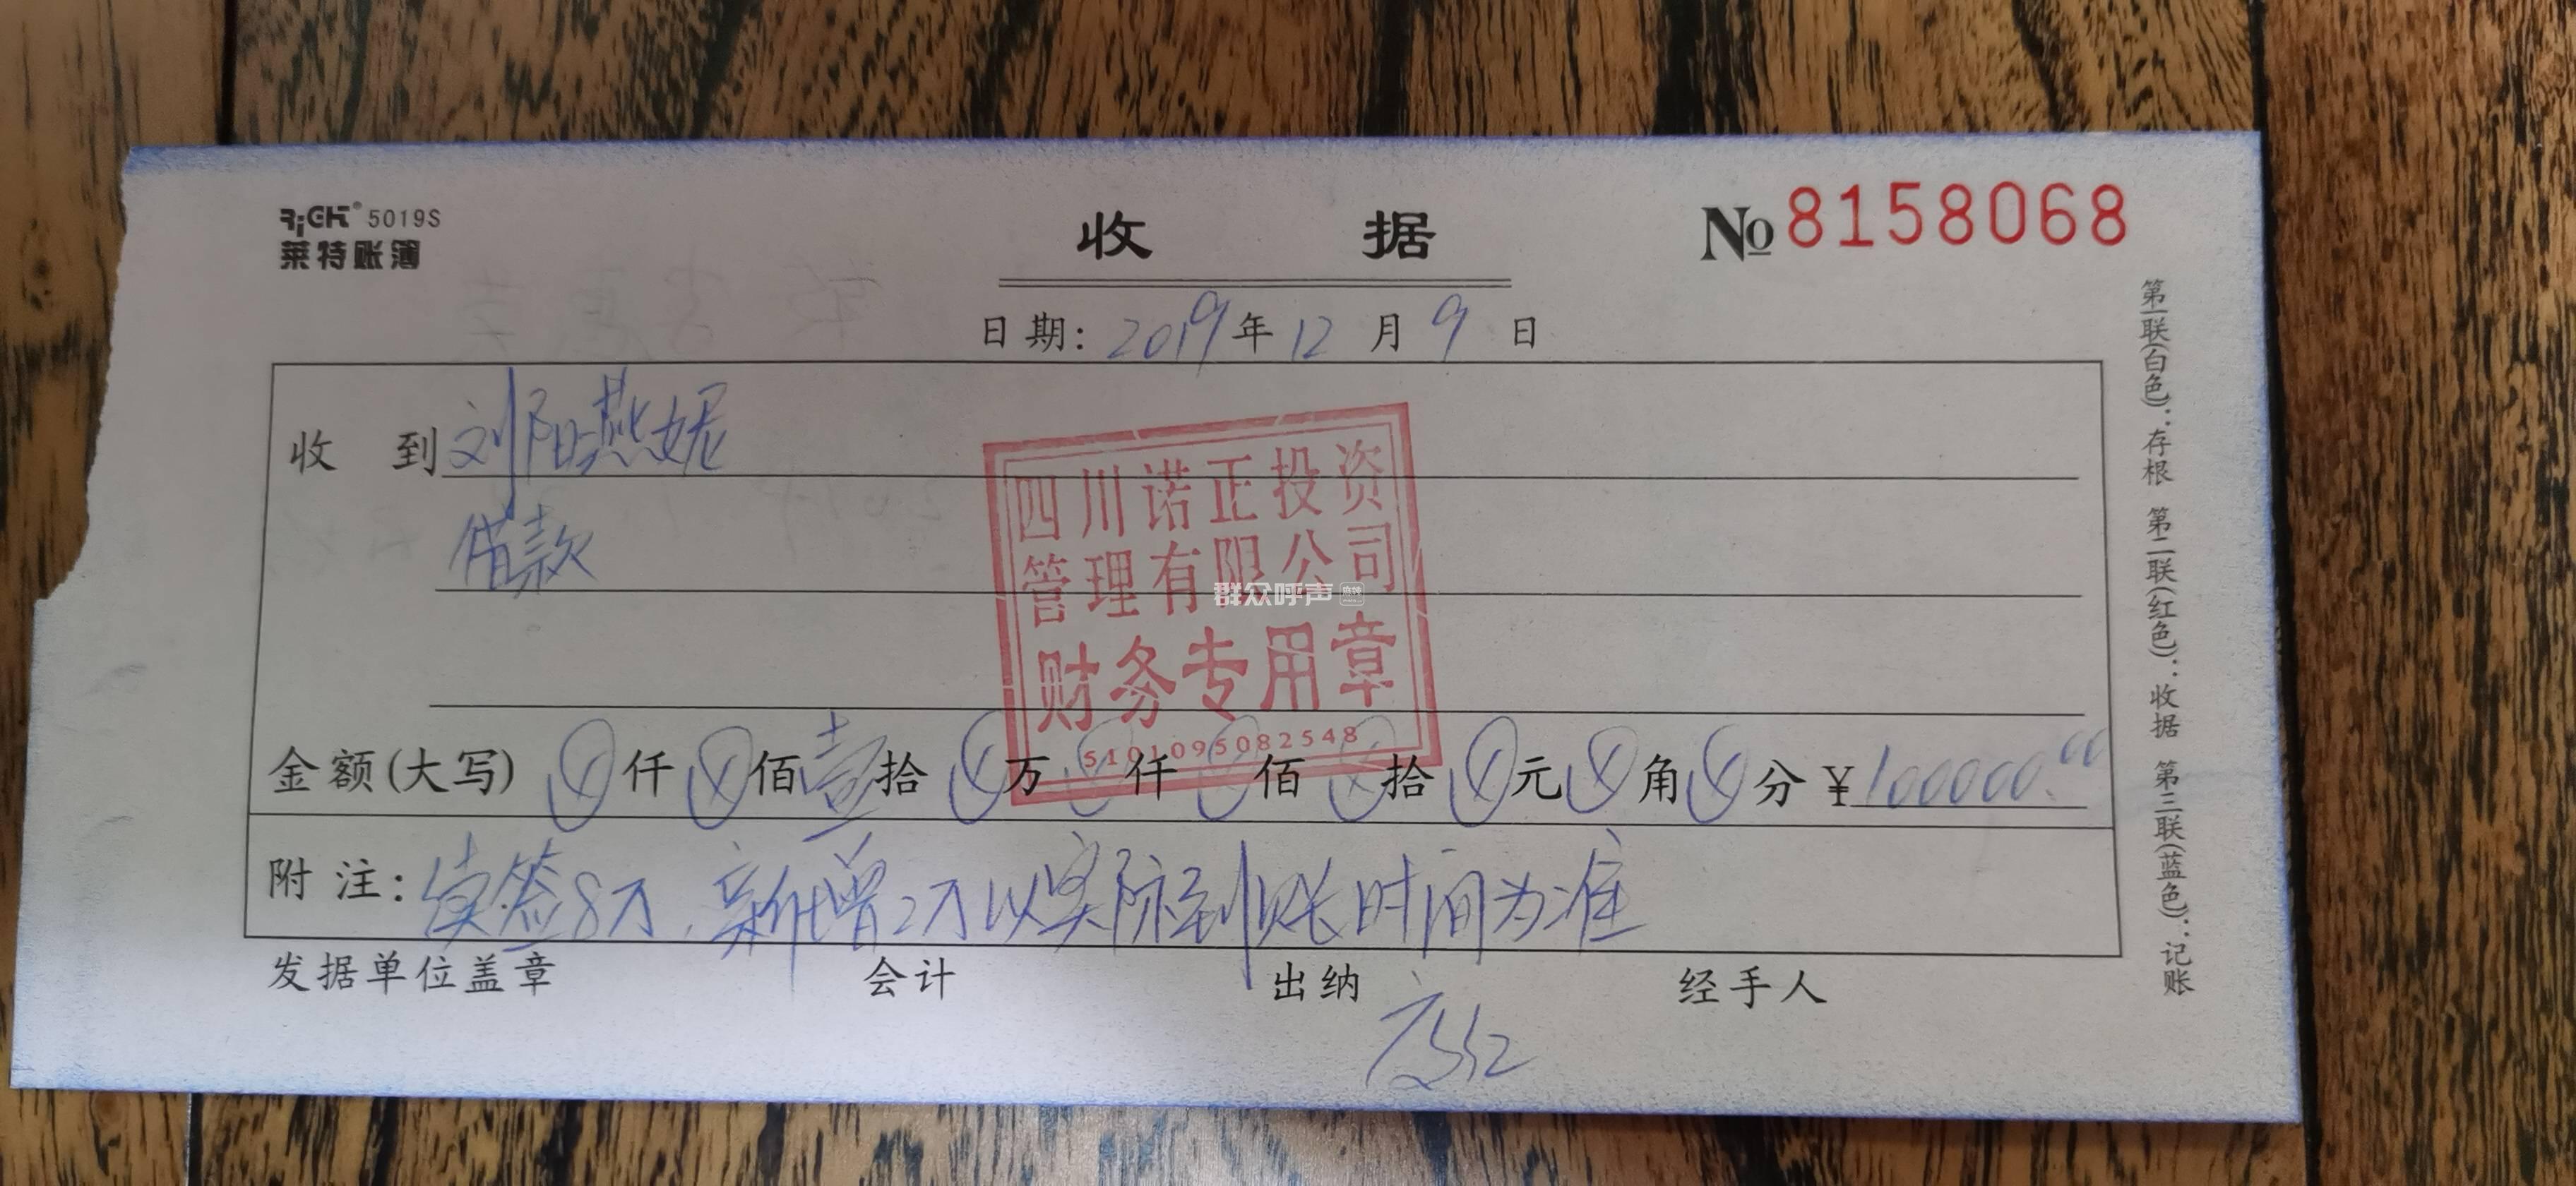 RiGHT® 5019S
莱特账簿
收 据
№ 8158068
日期: 2019 年 12 月 9 日
收 到 刘阳燕妮
借款
四川诺正投资
管理有限公司
财务专用章
5101095082548
群众呼声
金额(大写) ⊗ 仟 ⊗ 佰 壹 拾 ⊗ 万 ⊗ 仟 ⊗ 佰 ⊗ 拾 ⊗ 元 ⊗ 角 ⊗ 分 ¥ 100000.00
附 注: 续签8万,新增2万以实际到账时间为准
发据单位盖章 会计 出纳 经手人
第一联(白色):存根 第二联(红色):收据 第三联(蓝色):记账